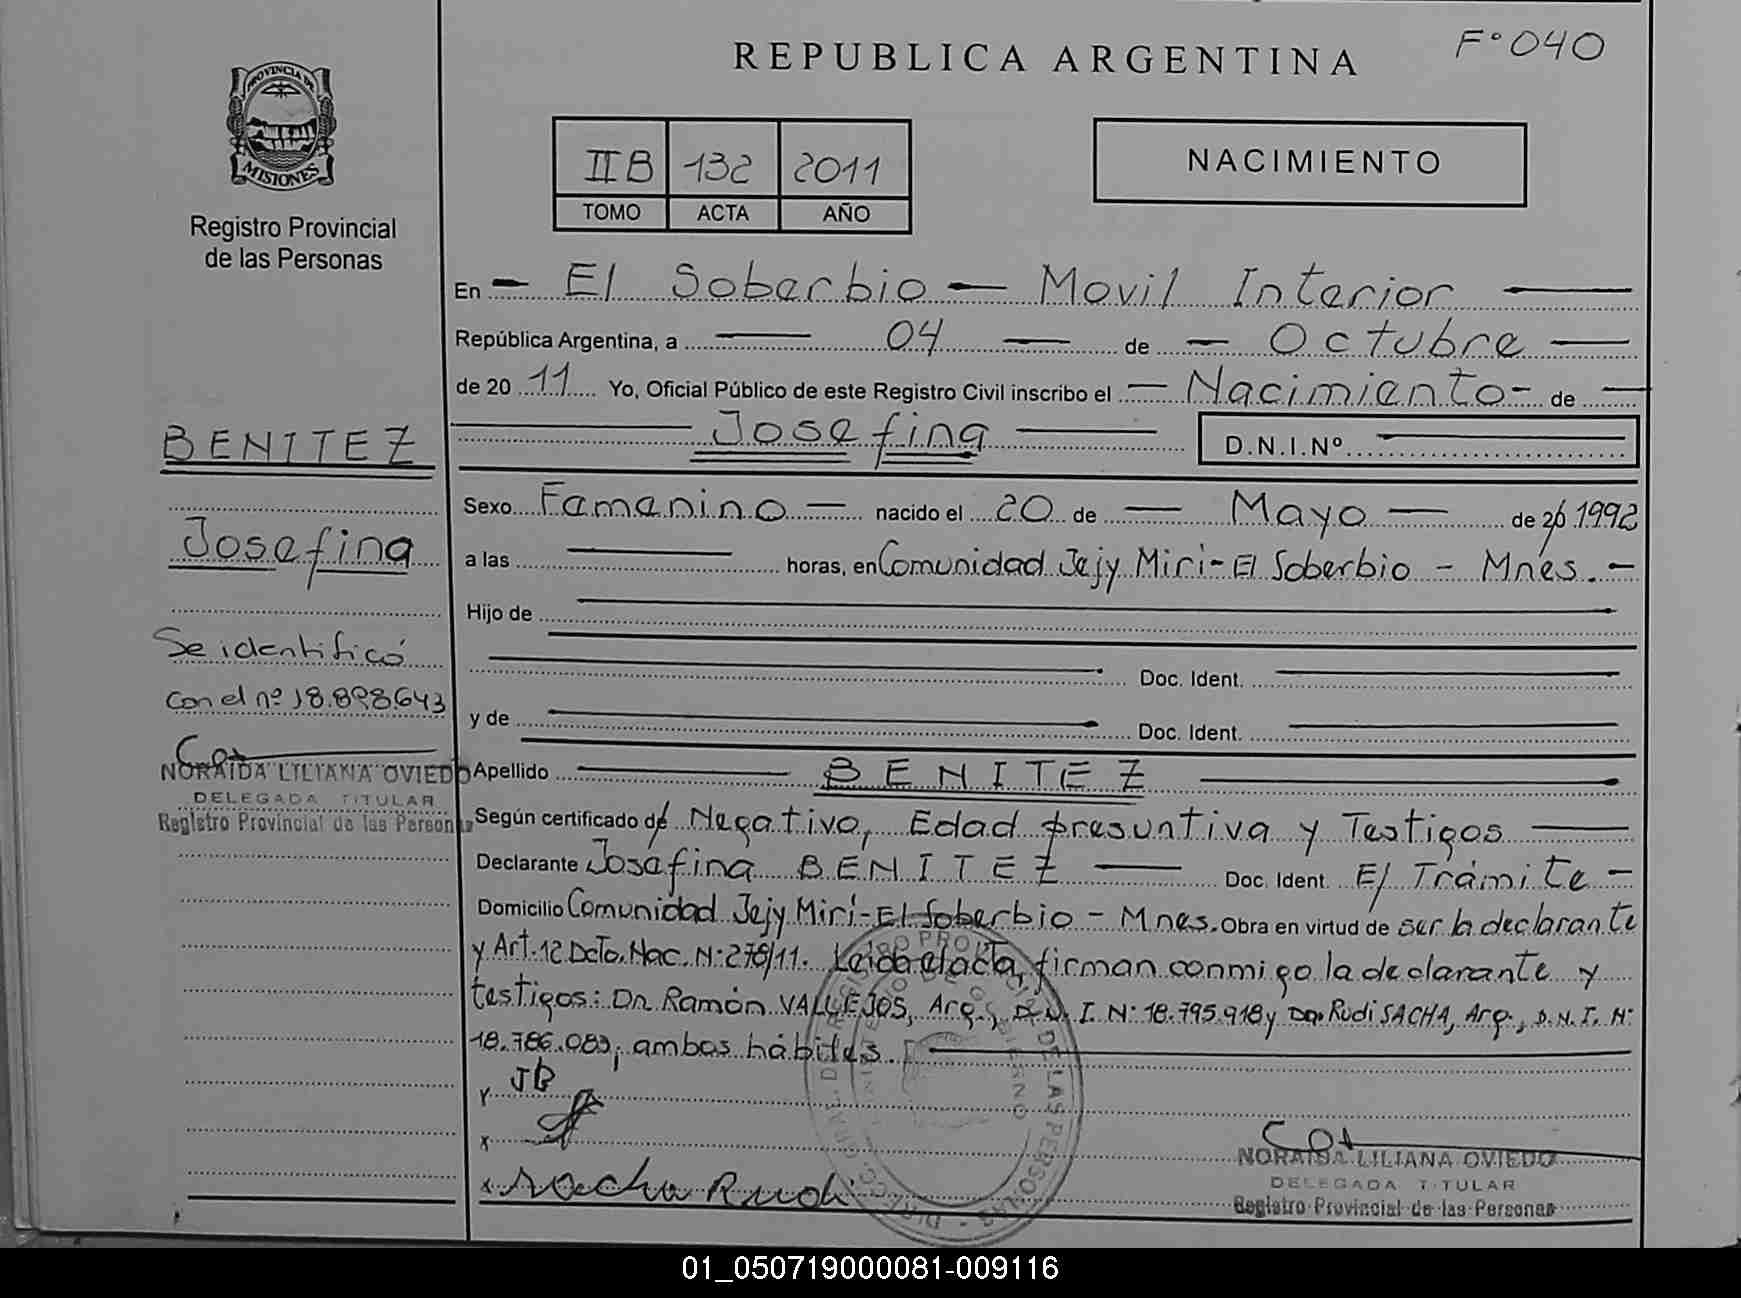 REPUBLICA ARGENTINA
Fº 040
PROVINCIA DE
MISIONES
Registro Provincial
de las Personas
IIB 132 2011
TOMO ACTA AÑO
NACIMIENTO
En El Soberbio — Movil Interior
República Argentina, a 04 de Octubre
de 20 11 Yo, Oficial Público de este Registro Civil inscribo el Nacimiento de
Josefina D.N.I.Nº
BENITEZ
Josefina
Se identificó
con el nº 18.898.643
NORAIDA LILIANA OVIEDO
DELEGADA TITULAR
Registro Provincial de las Personas
Sexo Femenino nacido el 20 de Mayo de 20 1992
a las horas, en Comunidad Jejy Miri - El Soberbio - Mnes.
Hijo de
Doc. Ident.
y de
Doc. Ident.
Apellido BENITEZ
Según certificado de Negativo, Edad presuntiva y Testigos
Declarante Josefina BENITEZ Doc. Ident. E/ Trámite
Domicilio Comunidad Jejy Mirí - El Soberbio - Mnes. Obra en virtud de ser la declarante
y Art. 12 Dcto. Nac. N: 278/11. Leida el acta, firman conmigo la declarante y
testigos: Dn Ramón VALLEJOS, Arg., D.N.I. N: 18.795.918 y Dn Rudi SACHA, Arg., D.N.I. N:
18.786.083, ambos hábiles
JB
Sacha Rudi
NORAIDA LILIANA OVIEDO
DELEGADA TITULAR
Registro Provincial de las Personas
01_050719000081-009116